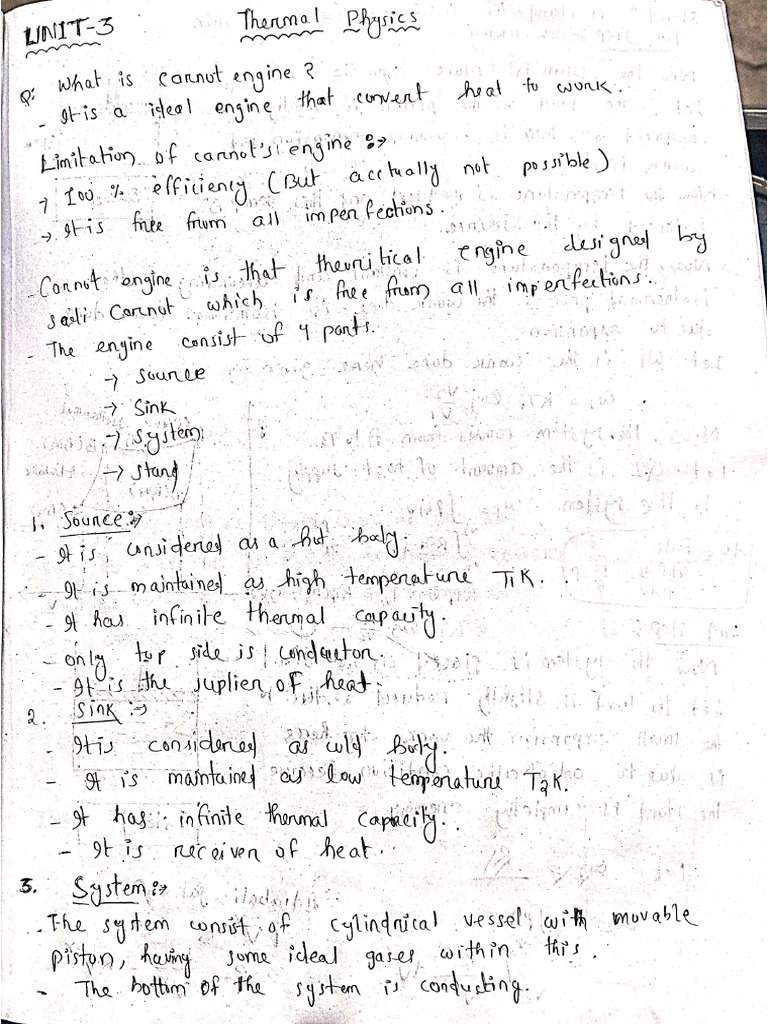 UNIT-3 Thermal Physics
Q: What is carnot engine?
- It is a ideal engine that convert heat to work.
Limitation of carnot's engine :->
→ 100 % efficiency (But acctually not possible)
→ It is free from all imperfections.
- Carnot engine is that theoritical engine designed by
sadi Carnot which is free from all imperfections.
- The engine consist of 4 parts.
→ source
→ Sink
→ system
→ stand
1. Source :->
- It is considered as a hot body.
- It is maintained as high temperature T1K.
- It has infinite thermal capacity.
- only top side is conductor.
- It is the suplier of heat.
2. Sink :->
- It is considered as cold body.
- It is maintained as low temperature T2K.
- It has infinite thermal capacity.
- It is receiver of heat.
3. System :->
- The system consist of cylindrical vessel with movable
piston, having some ideal gases within this.
- The bottom of the system is conducting.